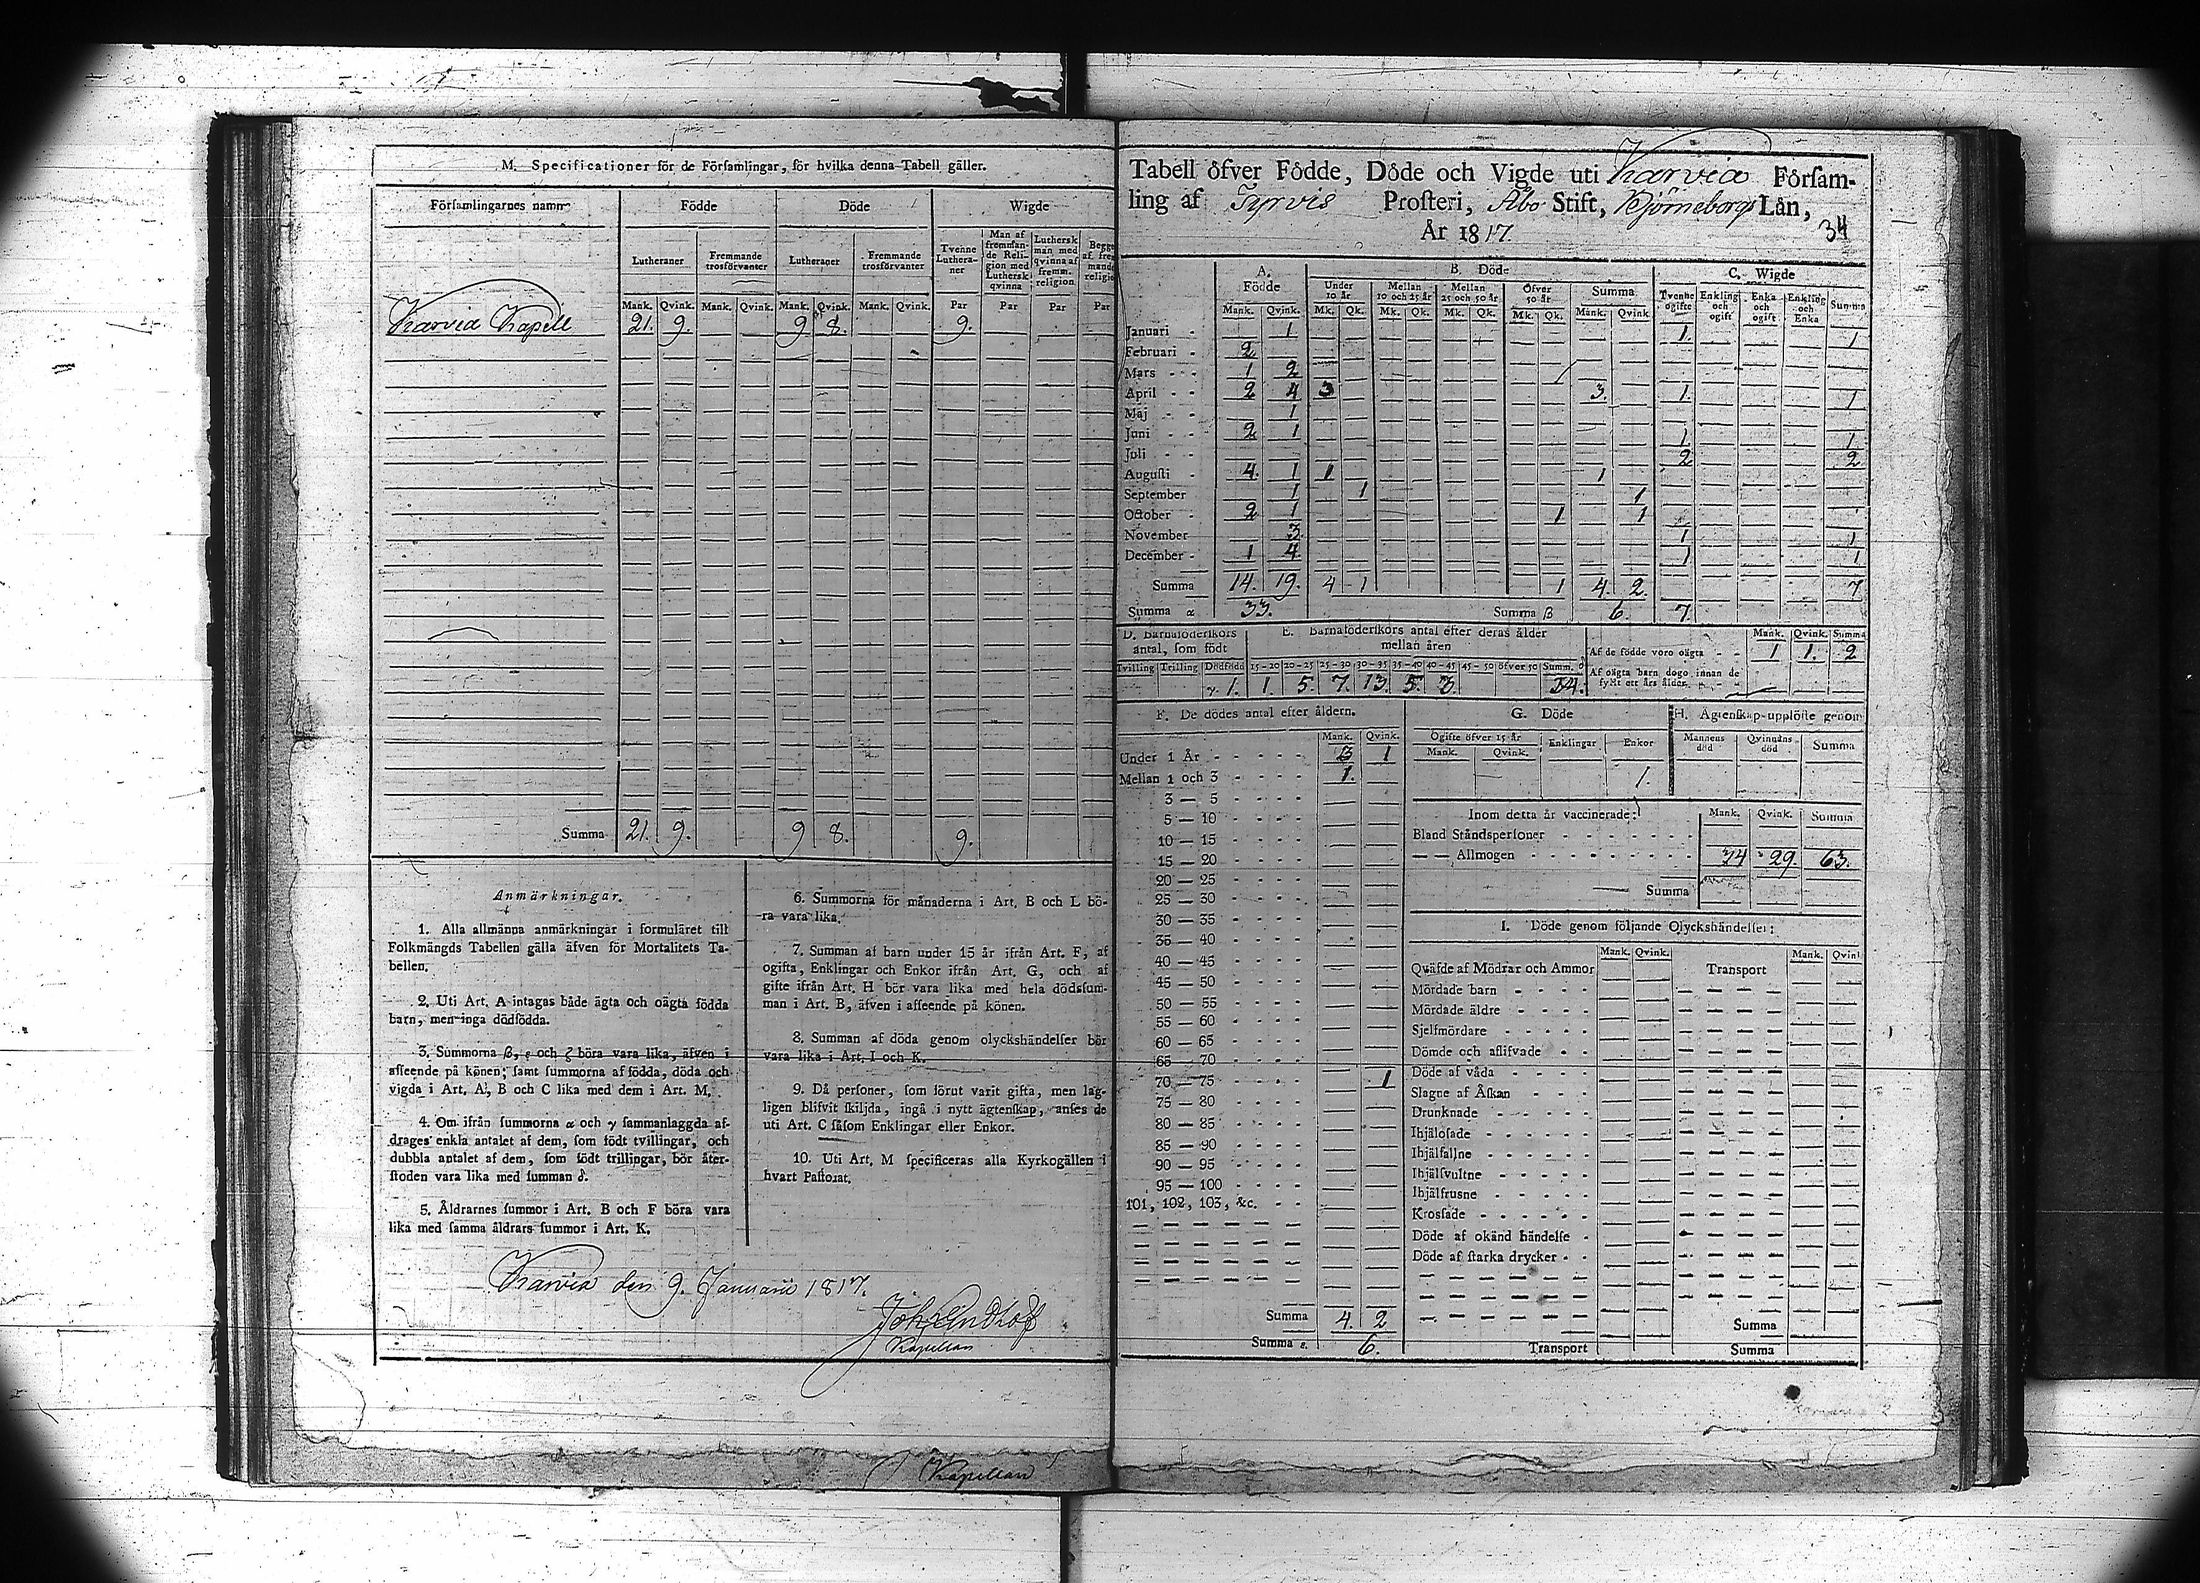 M. Specificationer för de Församlingar, för hvilka denna Tabell gäller.
Församlingarnes namn | Födde | Döde | Wigde
Lutheraner | Fremmande trosförvanter | Lutheraner | Fremmande trosförvanter | Tvenne Lutheraner | Man af fremmande Religion med Luthersk qvinna | Luthersk man med qvinna af fremm. religion
Mank. Qvink. Mank. Qvink. Mank. Qvink. Mank. Qvink. Par Par Par Par
Karvia Kapell 21. 9. 9 8. 9.
Summa 21. 9. 9 8. 9.
Anmärkningar.
1. Alla allmänna anmärkningar i formuläret till
Folkmängds Tabellen gälla äfven för Mortalitets Ta-
bellen.
2. Uti Art. A intagas både ägta och oägta födda
barn, men inga dödfödda.
3. Summorna β, ε och ζ böra vara lika, äfven i
afseende på könen; samt summorna af födda, döda och
vigda i Art. A, B och C lika med dem i Art. M.
4. Om ifrån summorna α och γ sammanlaggda af-
drages enkla antalet af dem, som födt tvillingar, och
dubbla antalet af dem, som födt trillingar, bör åter-
stoden vara lika med summan δ.
5. Åldrarnes summor i Art. B och F böra vara
lika med samma åldrars summor i Art. K.
6. Summorna för månaderna i Art. B och L bö-
ra vara lika.
7. Summan af barn under 15 år ifrån Art. F, af
ogifta, Enklingar och Enkor ifrån Art. G, och af
gifte ifrån Art. H bör vara lika med hela dödssum-
man i Art. B, äfven i afseende på könen.
8. Summan af döda genom olyckshändelser bör
vara lika i Art. I och K.
9. Då personer, som förut varit gifta, men lag-
ligen blifvit skiljda, ingå i nytt ägtenskap, anses de
uti Art. C såsom Enklingar eller Enkor.
10. Uti Art. M specificeras alla Kyrkogällen i
hvart Pastorat.
Karvia den 9. Januarii 1817.
Kapellan
Kapellan
Tabell öfver Födde, Döde och Vigde uti Karvia Försam-
ling af Tyrvis Prosteri, Åbo Stift, Björneborgs Län,
År 1817. 34
A. Födde | B. Döde | C. Wigde
Under 10 år | Mellan 10 och 25 år | Mellan 25 och 50 år | Öfver 50 år | Summa | Tvenne ogifte | Enkling och ogift | Enka och ogift | Enkling och Enka | Summa
Mank. Qvink. Mk. Qk. Mk. Qk. Mk. Qk. Mk. Qk. Mank. Qvink
Januari 1 1. 1
Februari 2
Mars 1 2
April 2 4 3 3. 1. 1
Maj 1
Juni 2 1 1 1
Juli 2 2
Augusti 4. 1 1 1
September 1 1 1
October 2 1 1 1
November 3 1 1
December 1 4 1 1
Summa 14. 19. 4 1 1 4. 2. 7
Summa α 33. Summa β 6. 7.
D. Barnaföderskors antal, som födt
Tvilling Trilling Dödfödd
γ 1.
E. Barnaföderskors antal efter deras ålder mellan åren
15-20 20-25 25-30 30-35 35-40 40-45 45-50 öfver 50 Summ. δ
1. 5. 7. 13. 5. 3. 34.
Mank. Qvink. Summa
Af de födde voro oägta 1 1. 2
Af oägta barn dogo innan de
fyllt ett års ålder
F. De dödes antal efter åldern.
Mank. Qvink.
Under 1 År 3 1
Mellan 1 och 3 1.
3 — 5
5 — 10
10 — 15
15 — 20
20 — 25
25 — 30
30 — 35
35 — 40
40 — 45
45 — 50
50 — 55
55 — 60
60 — 65
65 — 70
70 — 75 1
75 — 80
80 — 85
85 — 90
90 — 95
95 — 100
101, 102, 103, &c.
Summa 4. 2
Summa ε. 6.
G. Döde
Ogifte öfver 15 år | Enklingar | Enkor
Mank. Qvink.
1.
H. Ägtenskap upplöste genom
Mannens död | Qvinnans död | Summa
Inom detta år vaccinerade: Mank. Qvink. Summa
Bland Ståndspersoner
— — Allmogen 34 29. 63.
Summa
I. Döde genom följande Olyckshändelser:
Mank. Qvink. Mank.
Quäfde af Mödrar och Ammor Transport
Mördade barn
Mördade äldre
Sjelfmördare
Dömde och aflifvade
Döde af våda
Slagne af Åskan
Drunknade
Ihjälosade
Ihjälfallne
Ihjälsvultne
Ihjälfrusne
Krossade
Döde af okänd händelse
Döde af starka drycker
Summa
Transport Summa